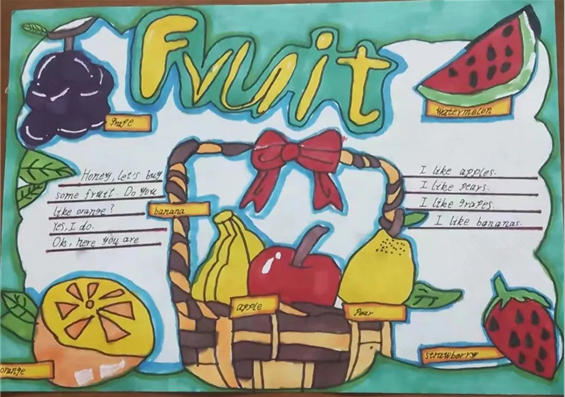 Fruit
grape
watermelon
Honey, let's buy
some fruit. Do you
like orange?
Yes, I do.
Ok, here you are
I like apples.
I like pears.
I like grapes.
I like bananas.
banana
apple
Pear
orange
strawberry